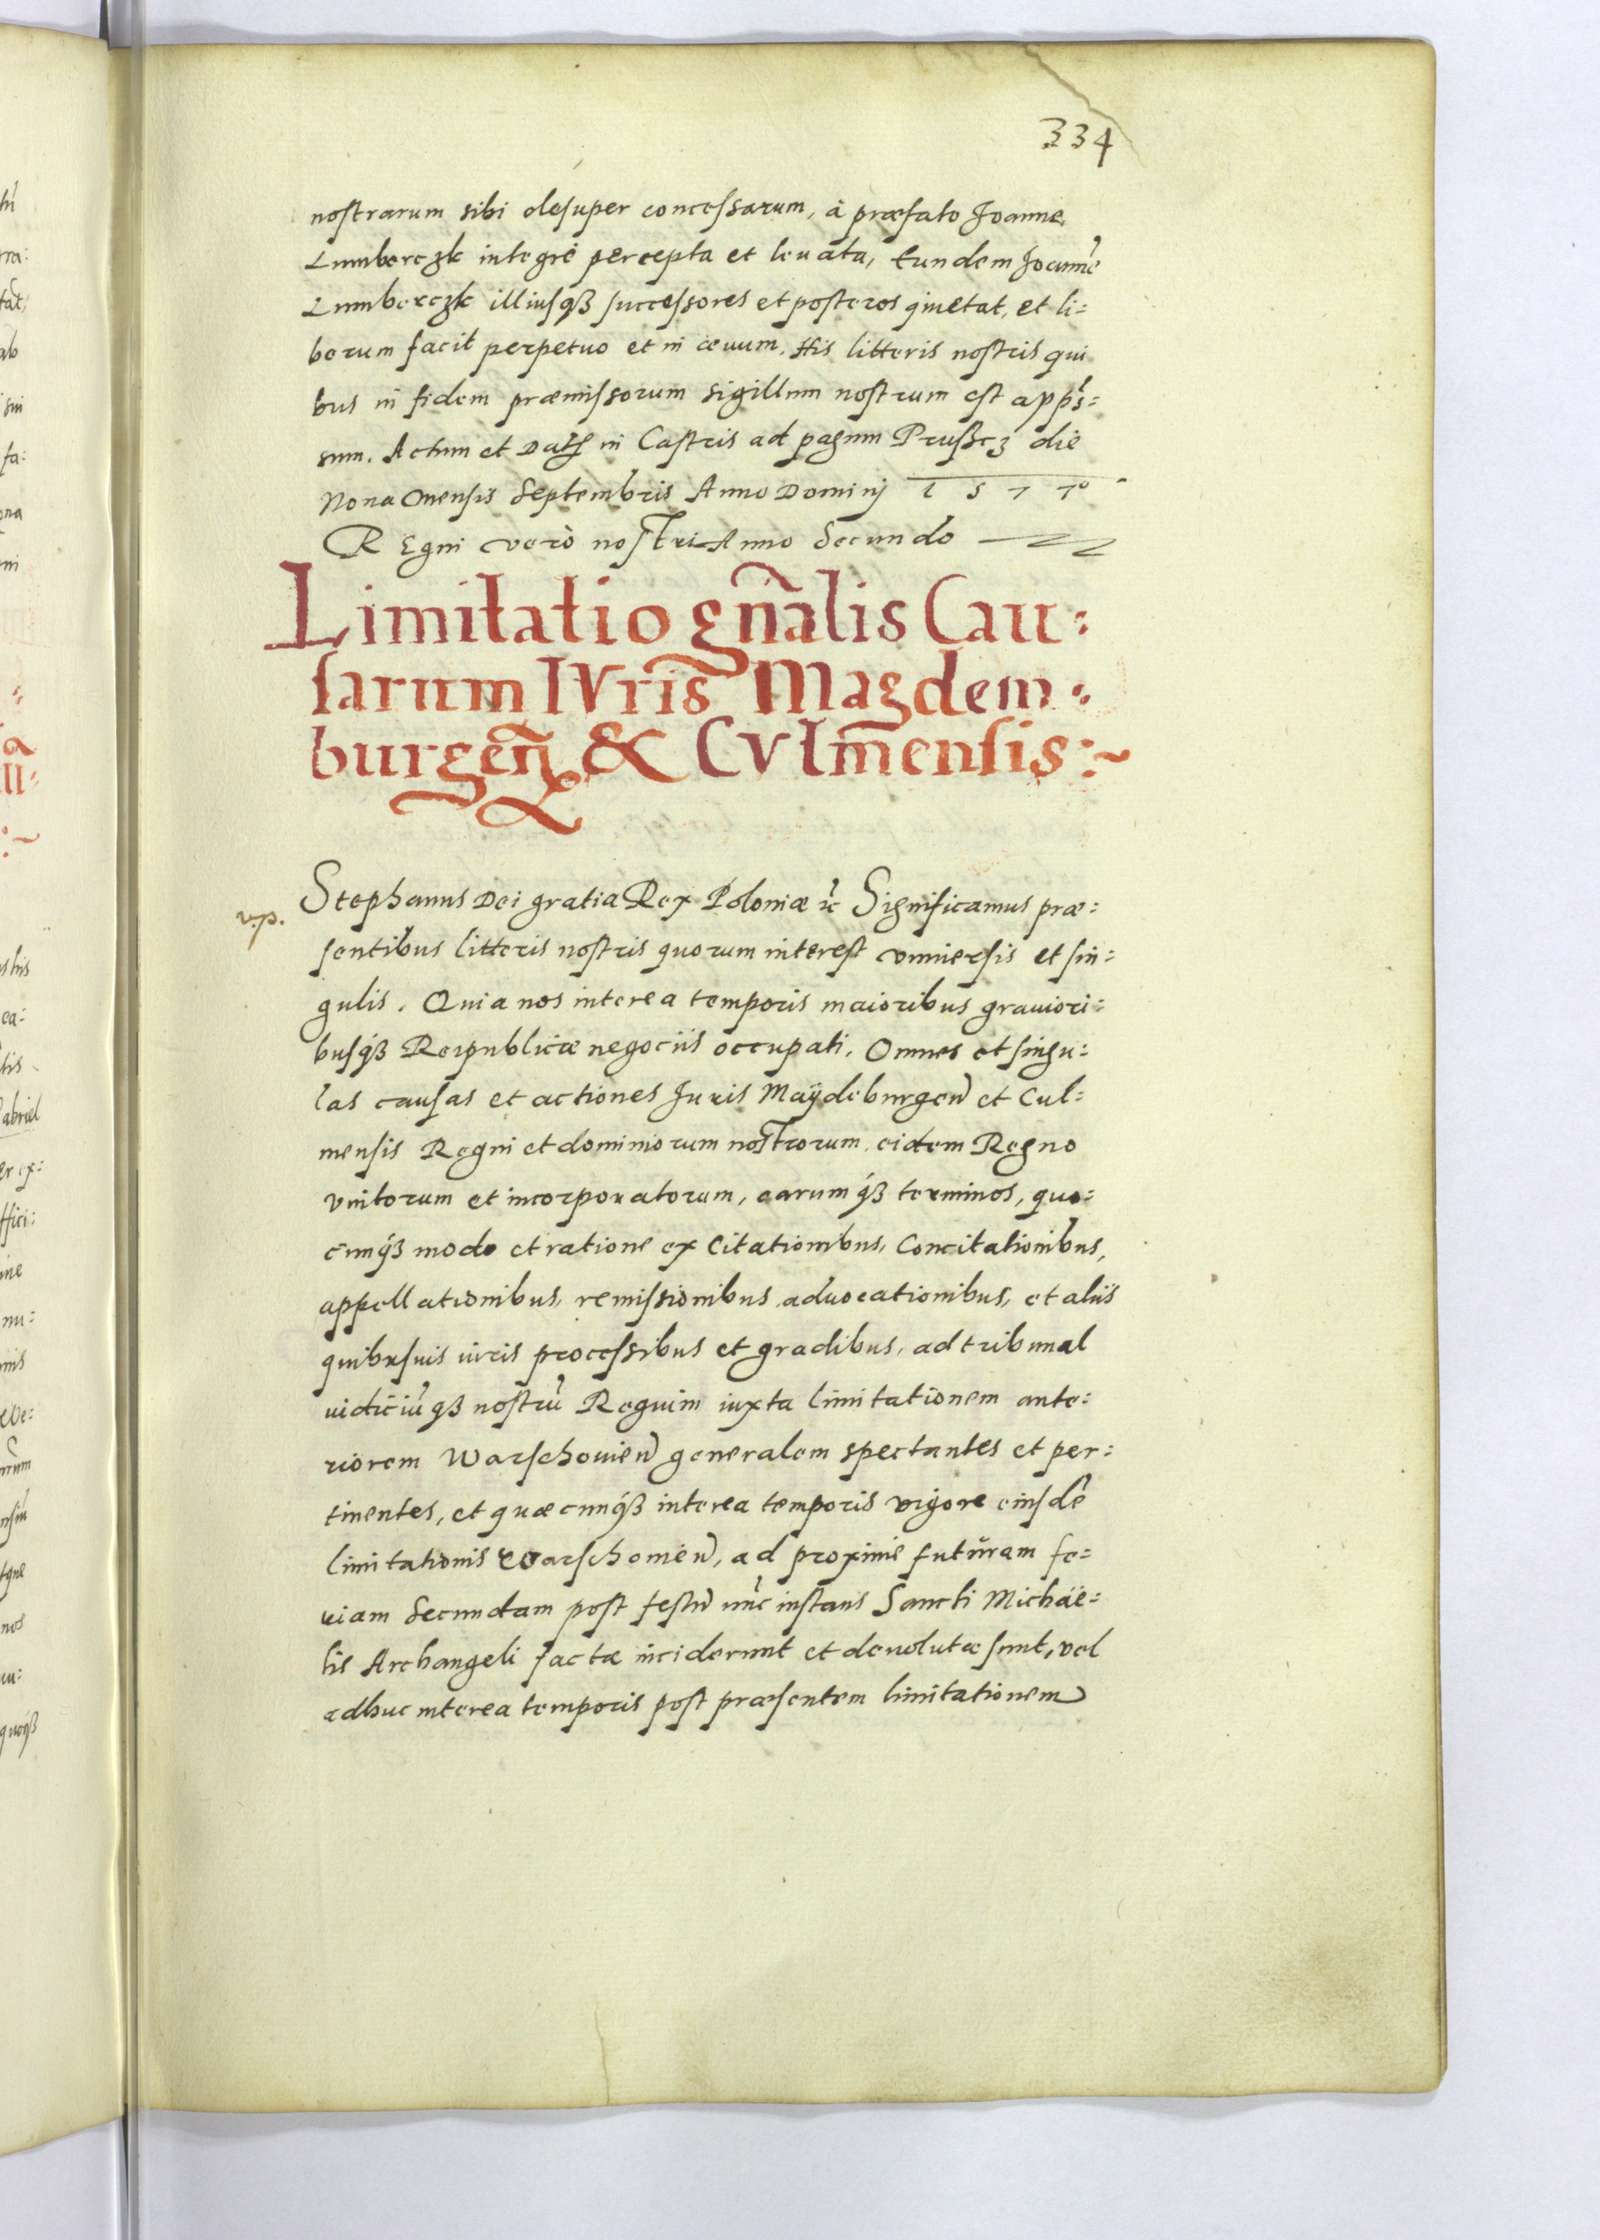 334
nostrarum sibi desuper concessarum, à præfato Joanne
Lumberczk integrè percepta et leuata, Eundem Joannẽ
Lumberczk illiusqꝫ successores et posteros quietat, et li:
berum facit perpetuo et in æuum. His litteris nostris qui
bus in fidem præmissorum sigillum nostrum est apprs̃:
sum. Actum et Datꝭ in Castris ad pagum Prussez die
Nona Mensis Septembris Anno Dominj 1577o
REgni verò nostri Anno Secundo
Limitatio gñalis Cau:
sarum IVris Magdem:
burgeñ & CVlmensis:~
v.p.
Stephanus Dei gratia Rex Poloniæ ꝛc̃ Significamus præ:
sentibus litteris nostris quorum interest vniuersis et sin:
gulis. Quia nos interea temporis maioribus grauiori:
busqꝫ Reipublicæ negociis occupati. Omnes et singu:
las causas et actiones Juris Maÿdeburgeñ et Cul:
mensis Regni et dominiorum nostrorum eidem Regno
vnitorum et incorporatorum, earumqꝫ terminos, quo:
cũnqꝫ modo et ratione ex Citationibus, Concitationibus,
appellationibus, remissionibus aduocationibus, et aliis
quibusuis iuris processibus et gradibus, ad tribunal
iudiciũqꝫ nostrũ Regium iuxta limitationem ante:
riorem Warschouieñ generalem spectantes et per:
tinentes, et quæcunqꝫ interea temporis vigore eiusdẽ
limitationis Warschouieñ, ad proxime futuram fe:
riam Secundam post festũ nũc instans Sancti Michäe:
lis Archangeli factæ inciderunt et deuolutæ sunt, vel
adhuc interea temporis post præsentem limitationem